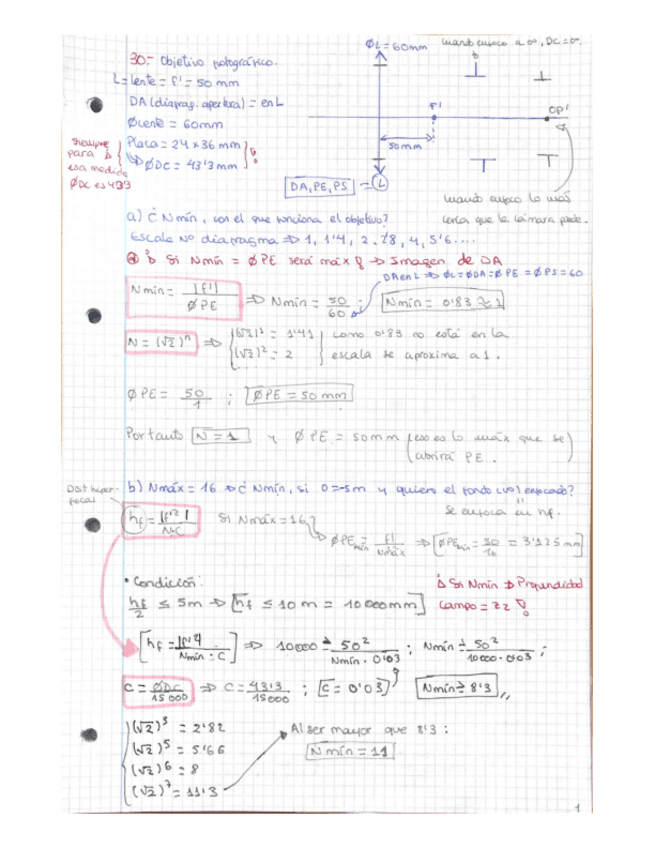 30.- Objetivo fotográfico.
L = lente = f' = 50 mm
DA (diafrag. apertura) = en L
Ølente = 60mm
Placa = 24 x 36 mm
ØDC = 43'3 mm
Siempre
para
esa medida
ØDC es 43'3
ØL = 60mm
cuando enfoco a ∞, DC = ∞.
F'
OP'
50mm
DA, PE, PS = L
cuando enfoco lo más
cerca que la cámara puede.
a) ¿ Nmín, con el que funciona el objetivo?
Escala Nº diafragma ⇒ 1, 1'4, 2, 2'8, 4, 5'6....
Si Nmín = ØPE será máx → Imagen de DA
DA en L ⇒ ØL = ØDA = ØPE = ØPS = 60
Nmín = |f'| / ØPE ⇒ Nmín = 50/60 ; Nmín = 0'83 ≈ 1
N = (√2)ⁿ ⇒ (√2)¹ = 1'41 como 0'83 no está en la
(√2)² = 2 escala se aproxima a 1.
ØPE = 50/1 ; ØPE = 50 mm
Por tanto N = 1 y ØPE = 50mm (eso es lo máx que se
abrirá PE.)
Dist hiper-
focal
b) Nmáx = 16 ⇒ ¿ Nmín, si O = -5m y quiero el fondo (∞) enfocado?
Se enfoca en hf.
hf = |f'²| / N·C Si Nmáx = 16
ØPEmín = f' / Nmáx ⇒ ØPEmín = 50/16 = 3'125 mm
• Condición:
Si Nmín ⇒ Profundidad
Campo =
hf/2 ≤ 5m ⇒ hf ≤ 10 m = 10000mm
hf = f'² / Nmín · C ⇒ 10000 ≥ 50² / Nmín · 0'03 ; Nmín ≥ 50² / 10000 · 0'03 ;
C = ØDC / 15000 ⇒ C = 43'3 / 15000 ; C = 0'03 Nmín ≥ 8'3 ,,
(√2)³ = 2'82 Al ser mayor que 8'3 :
(√2)⁵ = 5'66 Nmín = 11
(√2)⁶ = 8
(√2)⁷ = 11'3
1